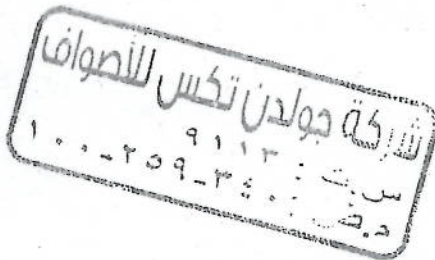 شركة جولدن تكس للأصواف
س.ت : ٩١١٣
د.ض : ١٠٠-٢٥٩-٣٤٠